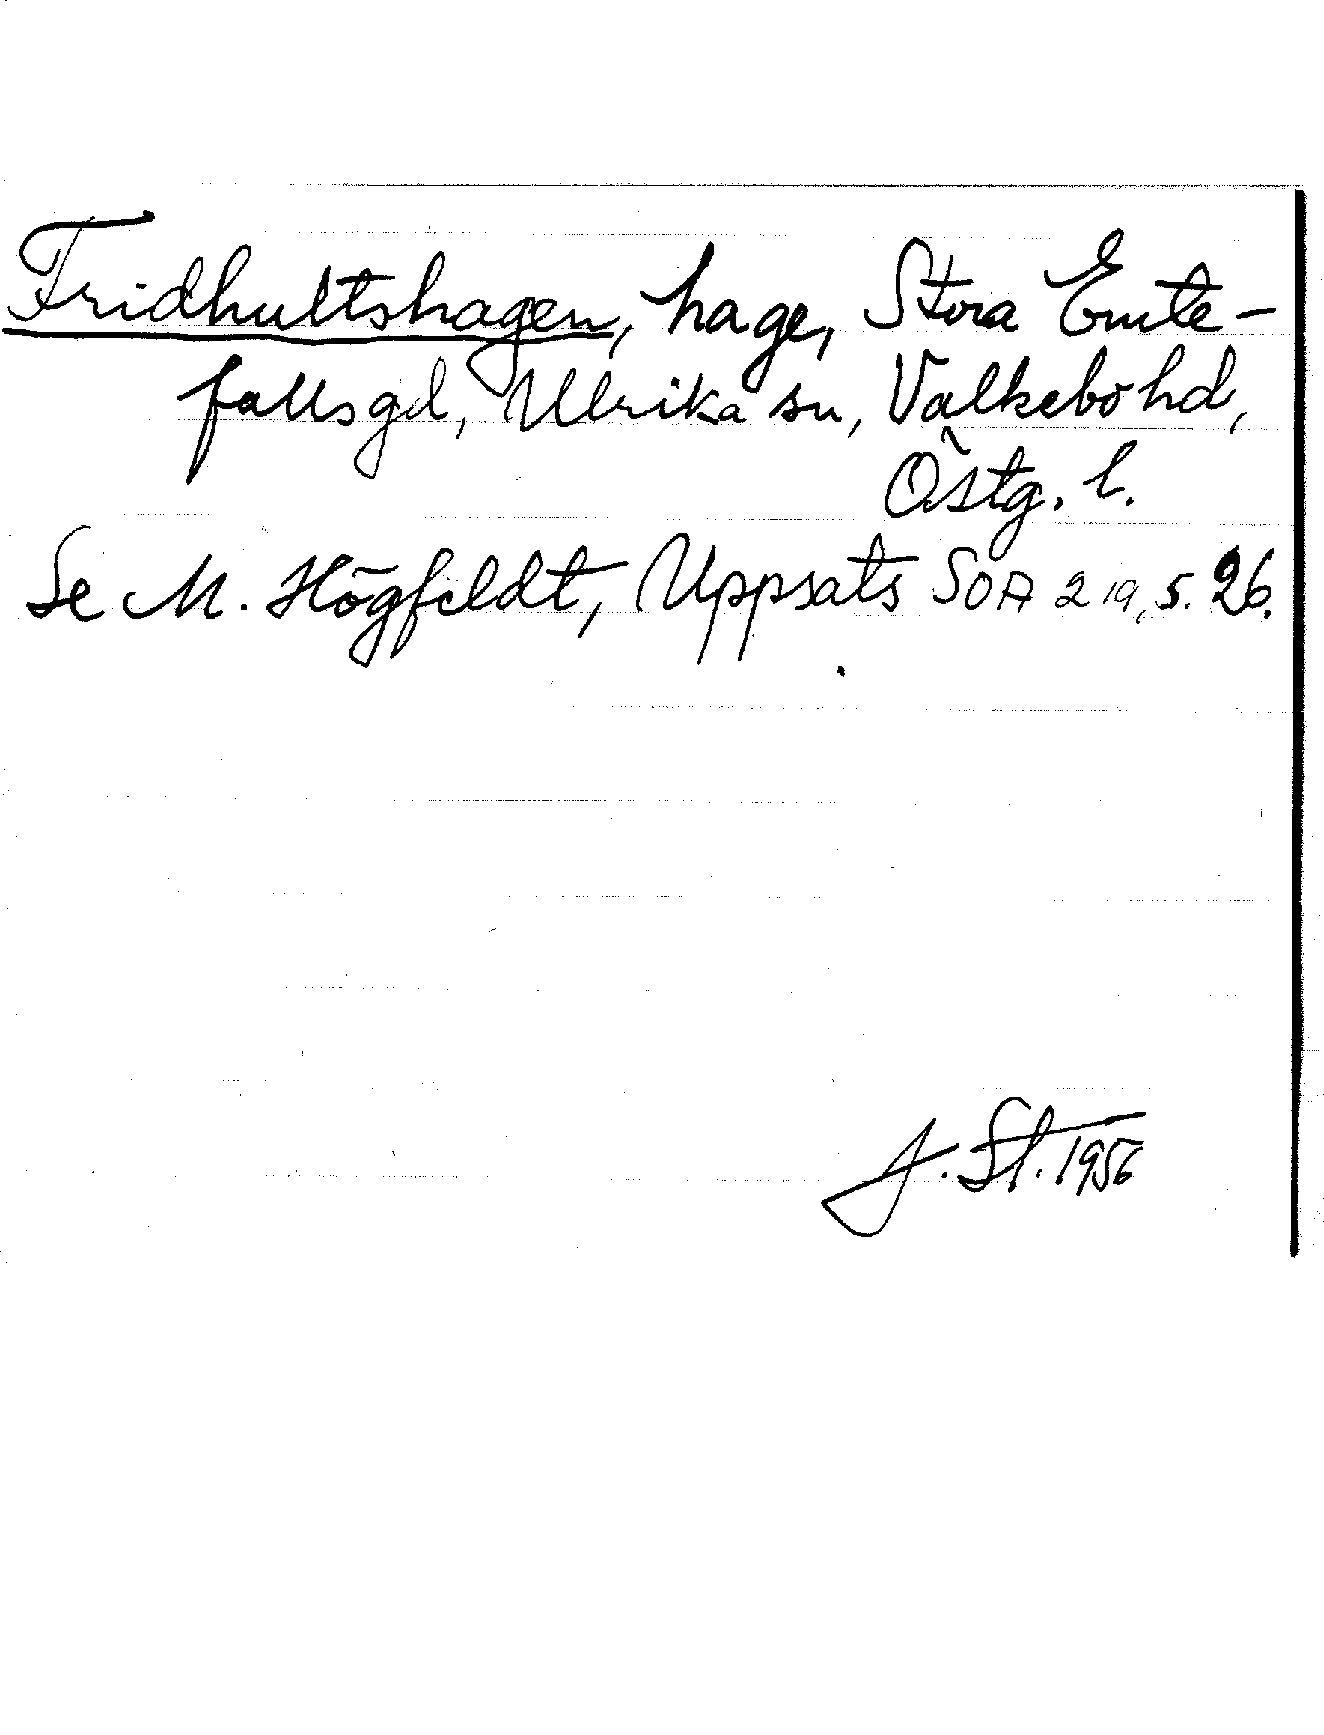 Fridhultshagen, hage, Stora Emte-
fallsgd, Ulrika sn, Valkebo hd,
Östg. l.
Se M. Högfeldt, Uppsats SOA 219, s. 26.
J. St. 1956